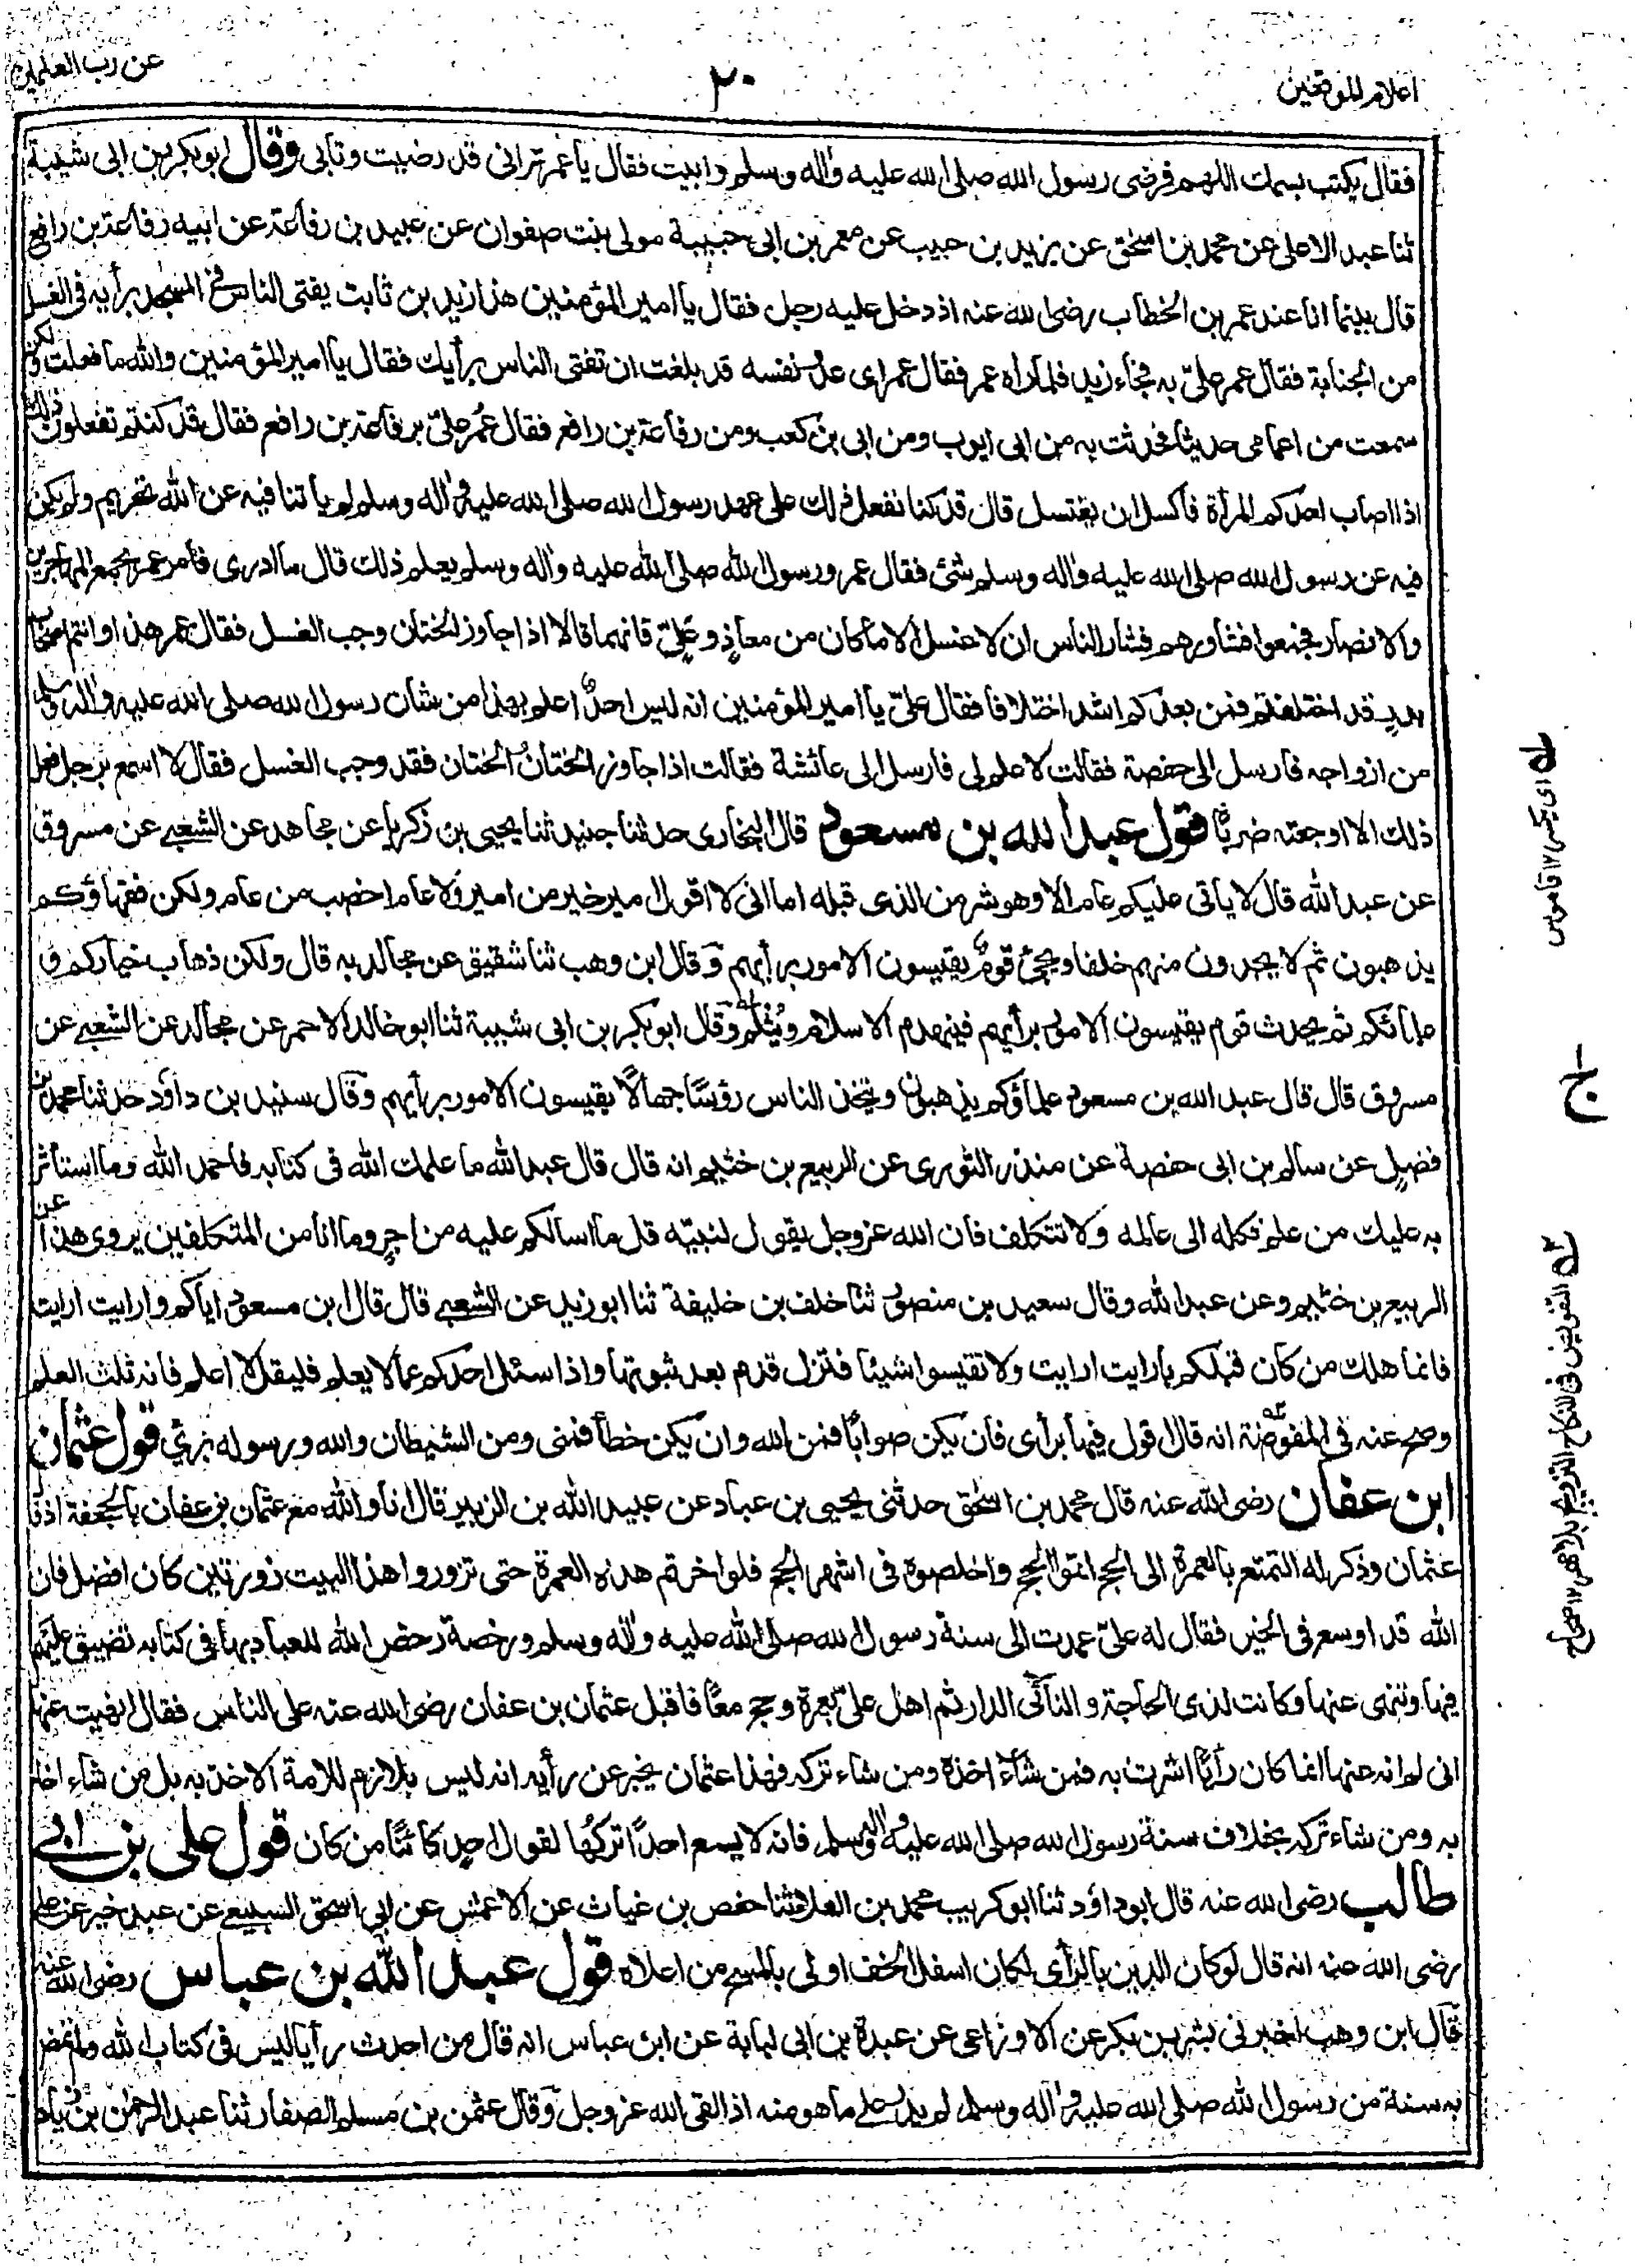 اعلام الموقعين
٢٠
عن رب العلمين
فقال يكتب بسمك اللهم فرضى رسول الله صلى الله عليه واله وسلم وابيت فقال يا عمر ترانى قد رضيت وتابى وقال ابو بكر بن ابى شيبة
ثنا عبد الاعلى عن محمد بن اسحٰق عن يزيد بن حبيب عن معمر بن ابى حبيبة مولى بنت صفوان عن عبيد بن رفاعة عن ابيه رفاعة بن رافع
قال بينما انا عند عمر بن الخطاب رضى الله عنه اذ دخل عليه رجل فقال يا امير المؤمنين هذا زيد بن ثابت يفتى الناس فى المسجد برأيه فى الغسل
من الجنابة فقال عمر علىّ به فجاء زيد فلما راه عمر فقال عمر اى عدو نفسه قد بلغت ان تفتى الناس برأيك فقال يا امير المؤمنين والله ما فعلت ولكن
سمعت من اعمامى حديثا فحدثت به من ابى ايوب ومن ابى بن كعب ومن رفاعة بن رافع فقال عمر علىّ برفاعة بن رافع فقال قد كنتم تفعلون ذلك
اذا اصاب احدكم المرأة فأكسل ان يغتسل قال قد كنا نفعل ذلك على عهد رسول الله صلى الله عليه واله وسلم لم يأتنا فيه عن الله تحريم ولم يكن
فيه عن رسول الله صلى الله عليه واله وسلم شئ فقال عمر ورسول الله صلى الله عليه واله وسلم يعلم ذلك قال ما ادرى فأمر عمر بجمع المهاجرين
والانصار فجمعوا فشاورهم فشار الناس ان لا غسل الا ما كان من معاذ وعلىّ فانهما قالا اذا جاوز الختان وجب الغسل فقال عمر هذا وانتم اصحاب
بدر قد اختلفتم فمن بعدكم اشد اختلافا فقال علىّ يا امير المؤمنين انه ليس احدٌ اعلم بهذا من شأن رسول الله صلى الله عليه واله وسلم
من ازواجه فارسل الى حفصة فقالت لا علم لى فارسل الى عائشة فقالت اذا جاوز الختان الختان فقد وجب الغسل فقال لا اسمع برجل فعل
ذلك الا اوجعته ضربًا قول عبد الله بن مسعود قال البخارى حدثنا جنيد ثنا يحيى بن زكريا عن مجاهد عن الشعبے عن مسروق
عن عبد الله قال لا يأتى عليكم عام الا وهو شر من الذى قبله اما انى لا اقول امير خير من امير ولا عام اخصب من عام ولكن فقهاؤكم
يذهبون ثم لا تجدون منهم خلفا ويجئ قومٌ يقيسون الامور برأيهم وقال ابن وهب ثنا شقيق عن مجالد به قال ولكن ذهاب خياركم و
علمائكم ثم يحدث قوم يقيسون الامور برأيهم فينهدم الاسلام ويثلم وقال ابو بكر بن ابى شيبة ثنا ابو خالد الاحمر عن مجالد عن الشعبے عن
مسروق قال قال عبد الله بن مسعود علماؤكم يذهبون ويتخذ الناس رؤسًا جهالًا يقيسون الامور برأيهم وقال سنيد بن داؤد حدثنا محمد بن
فضيل عن سالم بن ابى حفصة عن منذر الثورى عن الربيع بن خثيم انه قال قال عبد الله ما علمك الله فى كتابه فاحمد الله وما استأثر
به عليك من علم فكله الى عالمه ولا تتكلف فان الله عز وجل يقول لنبيّه قل ما اسالكم عليه من اجرٍ وما انا من المتكلفين يروى هذا عن
الربيع بن خثيم وعن عبد الله وقال سعيد بن منصور ثنا خلف بن خليفة ثنا ابو زيد عن الشعبے قال قال ابن مسعود اياكم وارايت ارايت
فانما هلك من كان قبلكم بارايت ارايت ولا تقيسوا شيئا فتزل قدم بعد ثبوتها واذا سئل احدكم عما لا يعلم فليقل لا اعلم فانه ثلث العلم
وصح عنه فى المفوضة انه قال اقول فيها برأى فان يكن صوابًا فمن الله وان يكن خطأ فمنى ومن الشيطان والله ورسوله برئ قول عثمان
ابن عفان رضى الله عنه قال محمد بن اسحٰق حدثنى يحيى بن عباد عن عبيد الله بن الزبير قال انا والله مع عثمان بن عفان بالجحفة اذ قال
عثمان وذكر له التمتع بالعمرة الى الحج اتموا الحج واخلصوه فى اشهر الحج فلو اخرتم هذه العمرة حتى تزوروا هذا البيت زورتين كان افضل فان
الله قد اوسع فى الخير فقال له علىّ عمدت الى سنة رسول الله صلى الله عليه واله وسلم ورخصة رخص الله للعباد بها فى كتابه تضيق عليهم
فيها وتنهى عنها وكانت لذى الحاجة والنائى الدار ثم اهل علىّ بعمرة وحج معًا فاقبل عثمان بن عفان رضى الله عنه على الناس فقال انهيت عنها
انى لم انه عنها انما كان رأيًا اشرت به فمن شاء اخذه ومن شاء تركه فهذا عثمان يخبر عن رأيه انه ليس بلازم للامة الاخذ به بل من شاء اخذ
به ومن شاء تركه بخلاف سنة رسول الله صلى الله عليه واله وسلم فانه لا يسع احدًا تركها لقول احدٍ كائنًا من كان قول على بن ابے
طالب رضى الله عنه قال ابو داؤد ثنا ابو كريب محمد بن العلاء ثنا حفص بن غياث عن الاعمش عن ابى اسحٰق السبيعے عن عبد خير عن على
رضى الله عنه انه قال لو كان الدين بالرأى لكان اسفل الخف اولى بالمسح من اعلاه قول عبد الله بن عباس رضى الله عنه
قال ابن وهب اخبرنى بشر بن بكر عن الاوزاعى عن عبدة بن ابى لبابة عن ابن عباس انه قال من احدث رأيا ليس فى كتاب الله ولم تمض
به سنة من رسول الله صلى الله عليه واله وسلم لم يدر على ما هو منه اذا لقى الله عز وجل وقال عثمن بن مسلم الصفار ثنا عبد الرحمن بن زياد
له اى يكسر ١٢ قاموس
ج
٢ه التفويض فى النكاح التزويج بلا مهر ١٢ صحاح